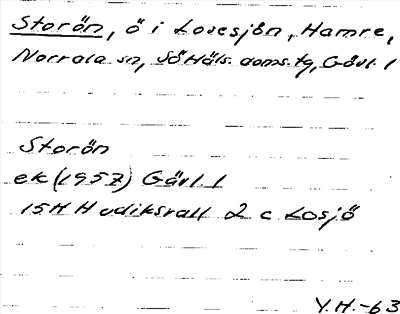 Storön, ö i Lossjön, Hamre,
Norrala sn, SöHäls. doms. tg, Gävl. l
Storön
ek (1957) Gävl. l
15H Hudiksvall 2 c Losjö
Y.H.-63